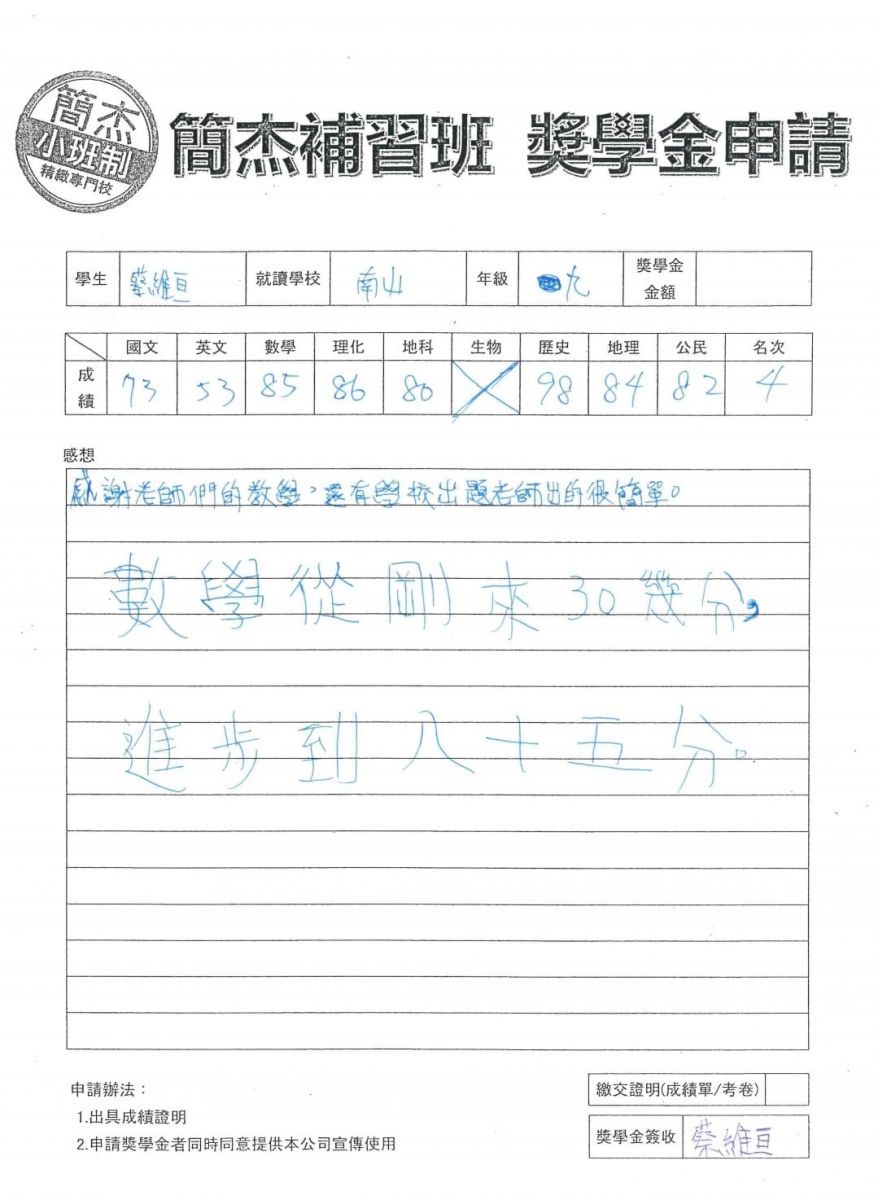 簡杰
小班制
精緻專門校
簡杰補習班 獎學金申請
學生 蔡維亘 就讀學校 南山 年級 九 獎學金金額
國文 英文 數學 理化 地科 生物 歷史 地理 公民 名次
成績 73 53 85 86 80 98 84 82 4
感想
感謝老師們的教學，還有學校出題老師出的很簡單。
數學從剛來30幾分，
進步到八十五分。
申請辦法：
1.出具成績證明
2.申請獎學金者同時同意提供本公司宣傳使用
繳交證明(成績單/考卷)
獎學金簽收 蔡維亘